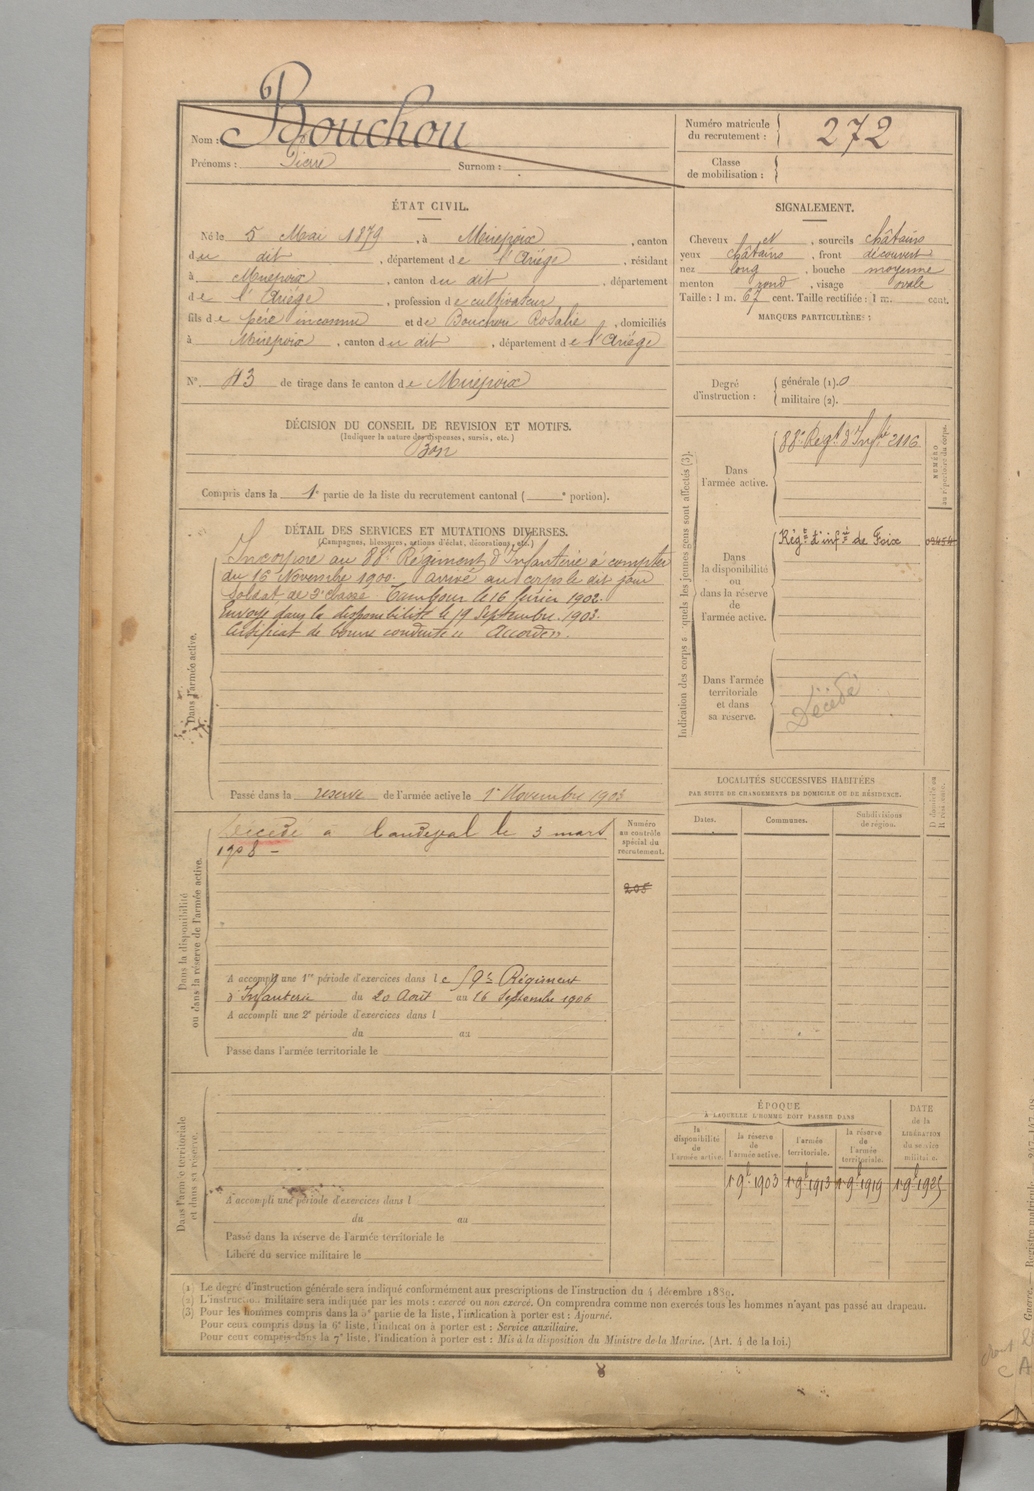 Nom : Bouchou
Prénoms : Pierre Surnom :
Numéro matricule du recrutement : 272
Classe de mobilisation :
ÉTAT CIVIL.
Né le 5 Mai 1879, à Mirepoix, canton
du dit, département de l'Ariège, résidant
à Mirepoix, canton du dit, département
de l'Ariège, profession de cultivateur
fils de père inconnu et de Bouchou Rosalie, domiciliés
à Mirepoix, canton du dit, département de l'Ariège
N° 43 de tirage dans le canton de Mirepoix
SIGNALEMENT.
Cheveux et, sourcils châtains
yeux châtains, front découvert
nez long, bouche moyenne
menton rond, visage ovale
Taille : 1 m. 67 cent. Taille rectifiée : 1 m. cent.
MARQUES PARTICULIÈRES :
Degré d'instruction : générale (1). 0
militaire (2).
DÉCISION DU CONSEIL DE REVISION ET MOTIFS.
(Indiquer la nature des dispenses, sursis, etc.)
Bon
Compris dans la 1e partie de la liste du recrutement cantonal ( e portion).
DÉTAIL DES SERVICES ET MUTATIONS DIVERSES.
(Campagnes, blessures, actions d'éclat, décorations, etc.)
Dans l'armée active.
Incorporé au 88e Régiment d'Infanterie à compter
du 16 Novembre 1900. arrivé au corps le dit jour
Soldat de 2e classe Tambour le 16 février 1902.
Envoyé dans la disponibilité le 19 Septembre 1903.
Certificat de bonne conduite "Accordé".
Passé dans la réserve de l'armée active le 1er Novembre 1903
Dans la disponibilité ou dans la réserve de l'armée active.
Décédé à le 3 mars
1908 –
Numéro au contrôle spécial du recrutement.
205
A accompli une 1re période d'exercices dans le 59e Régiment
d'Infanterie du 20 Août au 16 Septembre 1906
A accompli une 2e période d'exercices dans l
du au
Passé dans l'armée territoriale le
Dans l'armée territoriale et dans sa réserve.
A accompli une période d'exercices dans l
du au
Passé dans la réserve de l'armée territoriale le
Libéré du service militaire le
Indication des corps auxquels les jeunes gens sont affectés (3).
NUMÉRO au répertoire du corps.
Dans l'armée active.
88e Régt d'Infie 2116
Dans la disponibilité ou dans la réserve de l'armée active.
Régt d'infie de Foix
Dans l'armée territoriale et dans sa réserve.
Décédé
LOCALITÉS SUCCESSIVES HABITÉES
PAR SUITE DE CHANGEMENTS DE DOMICILE OU DE RÉSIDENCE.
Dates. Communes. Subdivisions de région. D domicile ou R résidence.
ÉPOQUE
A LAQUELLE L'HOMME DOIT PASSER DANS
DATE de la LIBÉRATION du service militaire.
la disponibilité de l'armée active. la réserve de l'armée active. l'armée territoriale. la réserve de l'armée territoriale.
1 9b 1903 1 9b 1913 1 9b 1919 1 9b 1925
(1) Le degré d'instruction générale sera indiqué conformément aux prescriptions de l'instruction du 4 décembre 1889.
(2) L'instruction militaire sera indiquée par les mots : exercé ou non exercé. On comprendra comme non exercés tous les hommes n'ayant pas passé au drapeau.
(3) Pour les hommes compris dans la 5e partie de la liste, l'indication à porter est : Ajourné.
Pour ceux compris dans la 6e liste, l'indication à porter est : Service auxiliaire.
Pour ceux compris dans la 7e liste, l'indication à porter est : Mis à la disposition du Ministre de la Marine. (Art. 4 de la loi.)